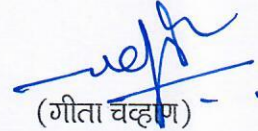 (गीता चव्हाण)